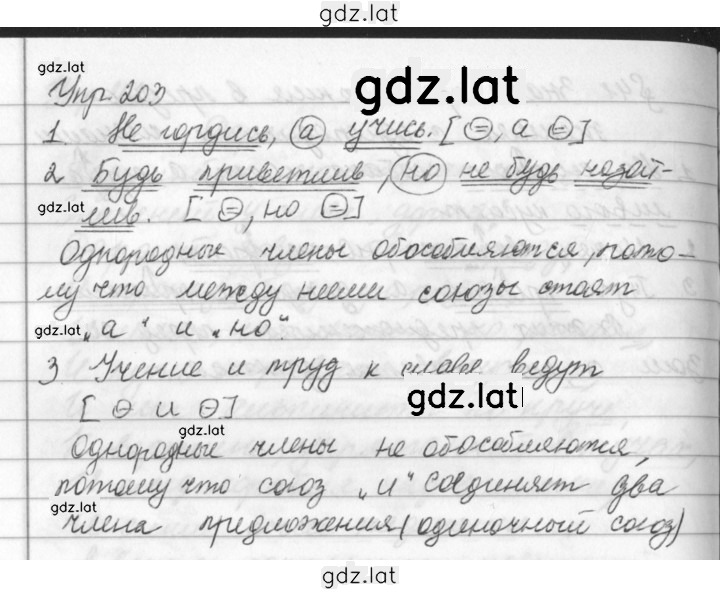 gdz.lat
gdz.lat
Упр. 203
gdz.lat
1 Не гордись, а учись. [⊖, а ⊖]
2 Будь приветлив, но не будь назой-
gdz.lat
лив. [⊖, но ⊖]
Однородные члены обособляются, пото-
му что между ними союзы стоят
gdz.lat
„а“ и „но“.
3 Учение и труд к славе ведут
gdz.lat
[⊖ и ⊖]
gdz.lat
Однородные члены не обособляются,
потому что союз „и“ соединяет два
gdz.lat
члена предложения (одиночный союз)
gdz.lat